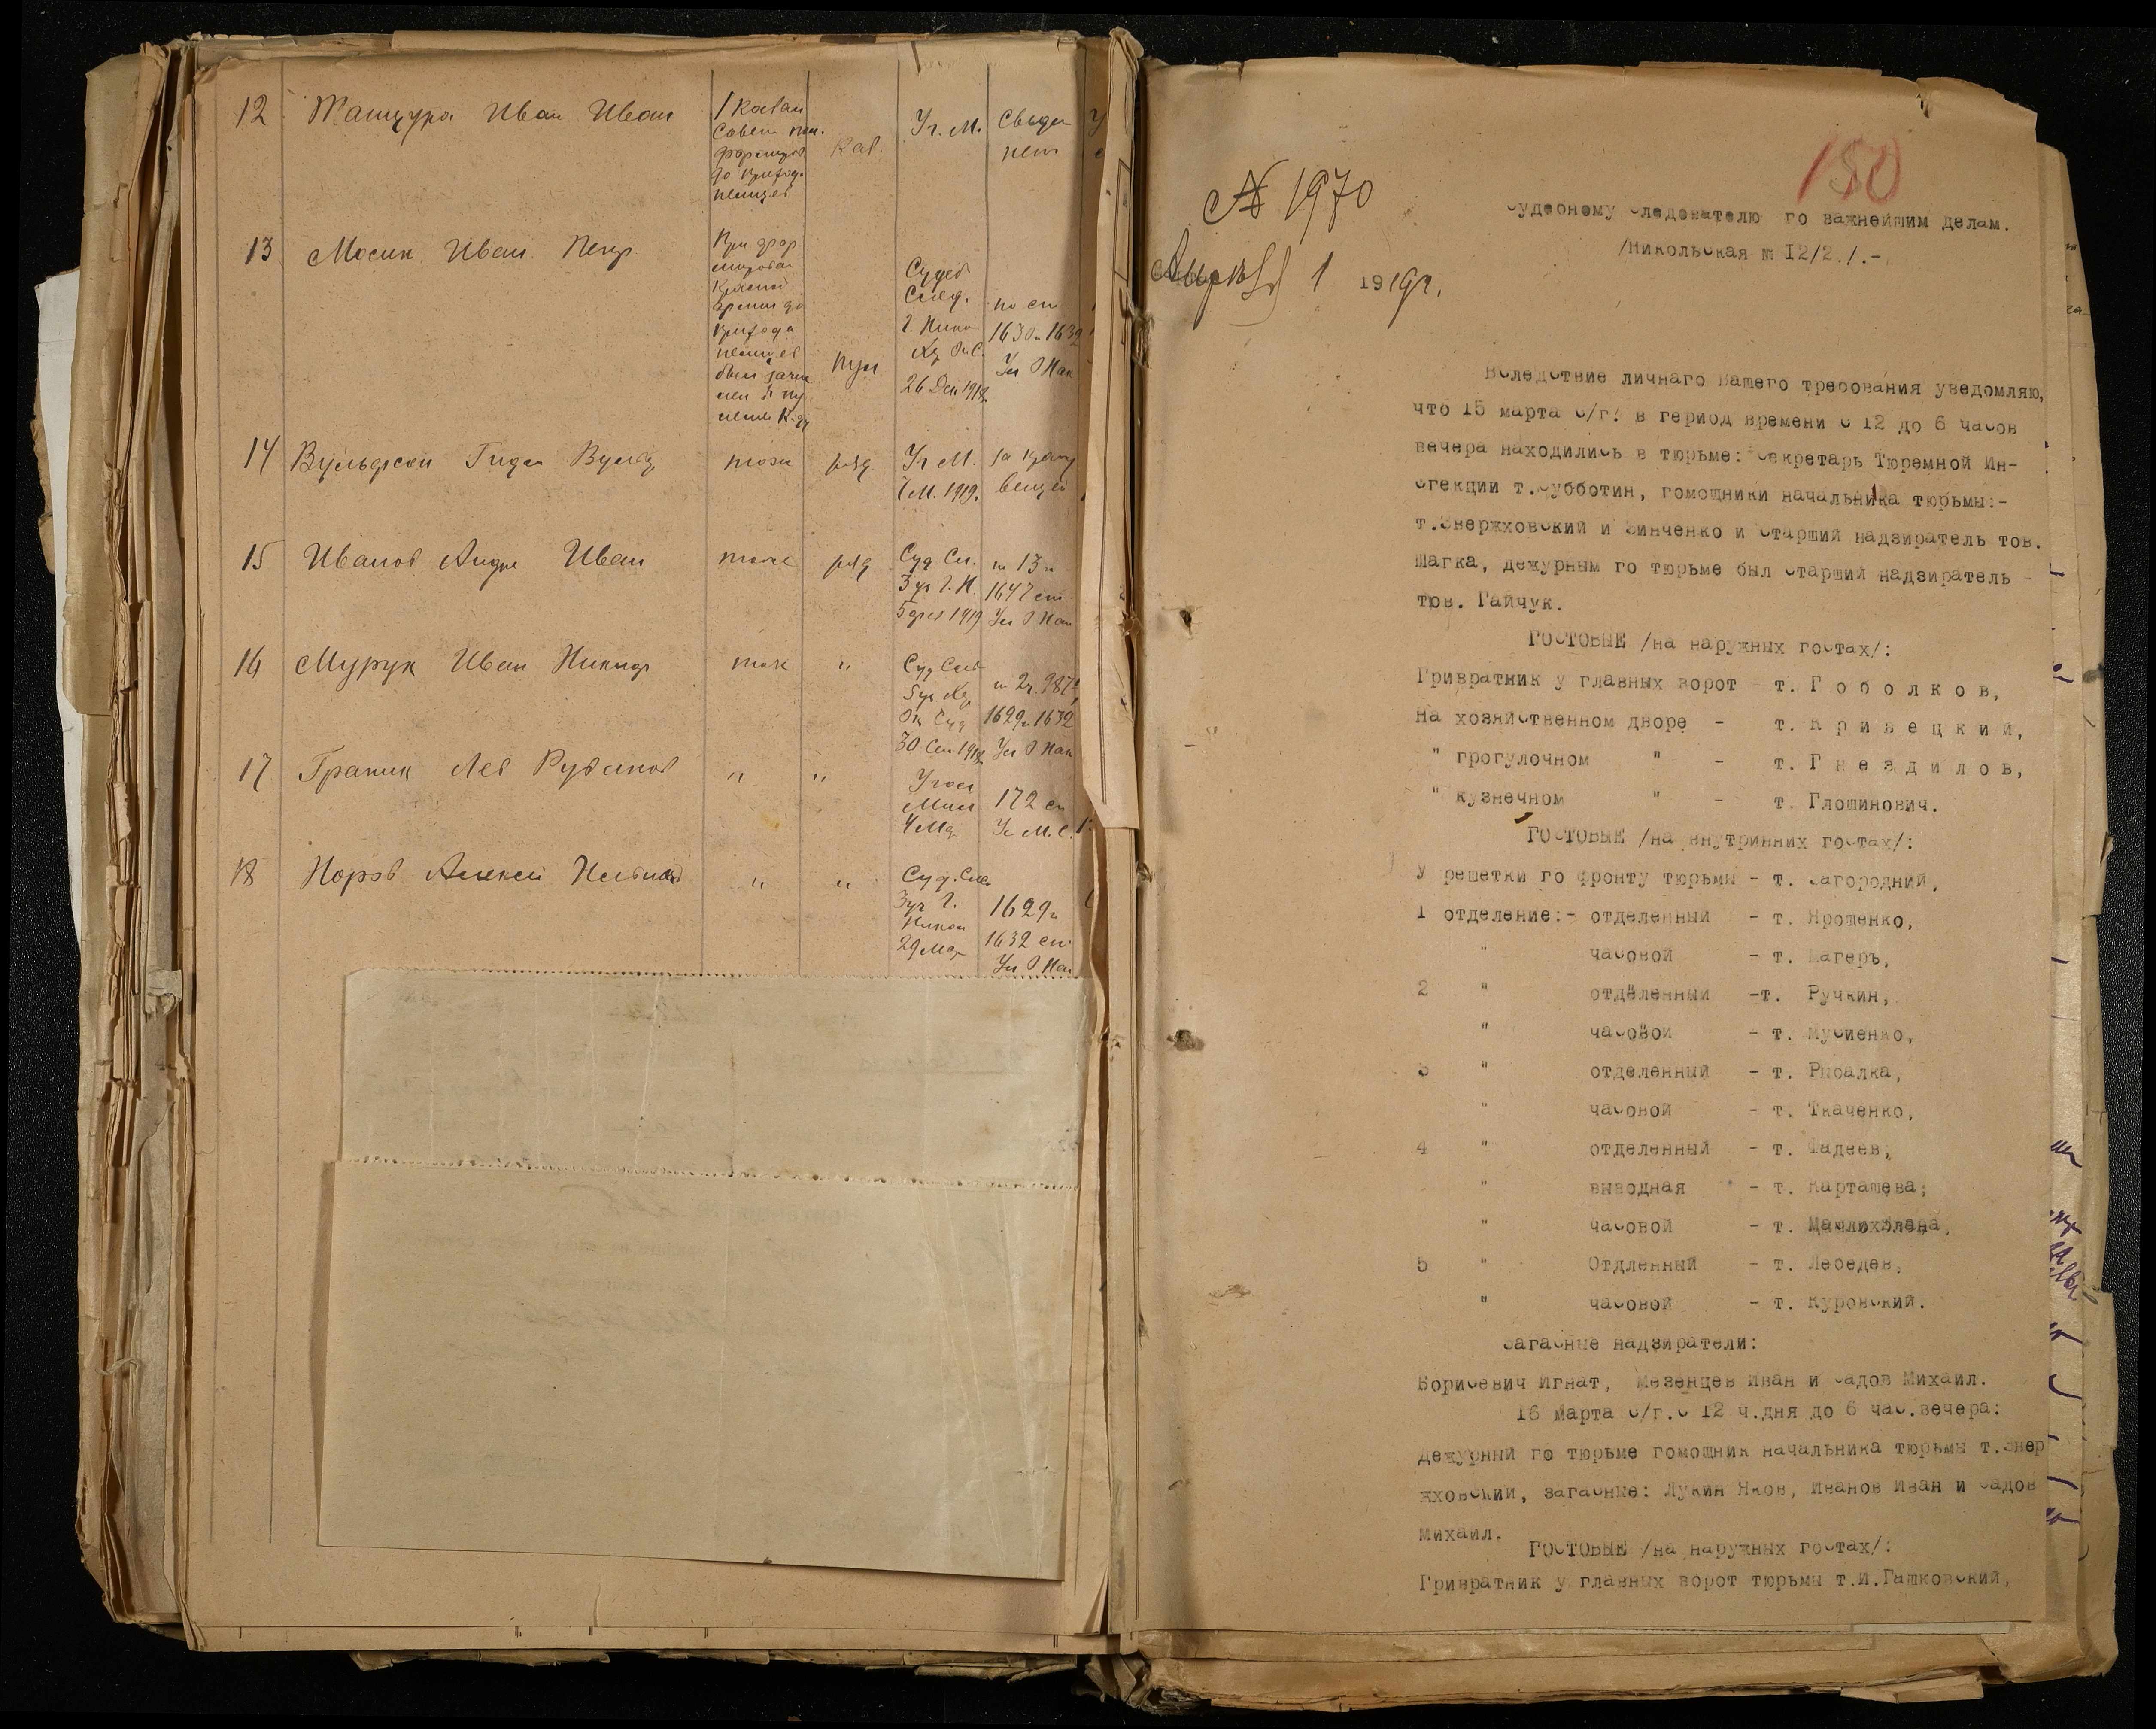 12 Иван Иван
1 Кавал
Совет
до приход.
немцев
Кав.
Уг. М.
Сведен
нет
13 Мосин Иван Петр
При фор
мирован
Красной
армии до
прихода
немцев
был зачис
лен в пу
Пул
Судеб
След.
г. Нико
Ок. С.
26 Дек 1918
по ст
1630 и 1632
Ул о Нак
14 Вульфсон Вульф
тоже
ряд
Уг М.
7 М. 1919.
за кражу
вещей
15 Иванов Андре Иван
тоже
ряд
Суд Сл.
3 уч г. Н.
5 фев 1919
по 13 п
1647 ст
Ул о Нак
16 Мурук Иван Никиф
тоже
"
Суд След
5 уч Хар
Ок Суд
30 Сен 1918
по 2 ч. 987
1629 и 1632
Ул о Нак
17 Граник Лев Рубинов
"
"
Угол
Мил
4 Мар
172 ст
Ус М. С.
18 Алексей
"
"
Суд. След
3 уч г.
Никол
29 Мар
1629 и
1632 ст
Ул о Нак
150
№ 1970
Судебному Следователю по важнейшим делам.
/Никольская № 12/2./.-
1 1919г.
Вследствие личнаго Вашего требования уведомляю,
что 15 марта с/г. в период времени с 12 до 6 часов
вечера находились в тюрьме: Секретарь Тюремной Ин-
спекции т.Субботин, помощники начальника тюрьмы:-
т.Знержховский и Зинченко и Старший надзиратель тов.
Шапка, дежурным по тюрьме был Старший надзиратель -
тов. Гайчук.
ПОСТОВЫЕ /на наружных постах/:
Привратник у главных ворот - т. П о б о л к о в,
На хозяйственном дворе - т. К р и в е ц к и й,
" прогулочном " - т. Г н е з д и л о в,
" кузнечном " - т. Плошинович.
ПОСТОВЫЕ /на внутринних постах/:
У решетки по фронту тюрьмы - т. Загородний,
1 отделение:- отделенный - т. Ярошенко,
" часовой - т. Магеръ,
2 " отделенный -т. Ручкин,
" часовой - т. Мусиенко,
3 " отделенный - т. Рыбалка,
" часовой - т. Ткаченко,
4 " отделенный - т. Фадеев,
" выводная - т. Карташева;
" часовой - т.
5 " Отдленный - т. Лебедев,
" часовой - т. Куровский.
Запасные надзиратели:
Борисевич Игнат, Мезенцев Иван и Садов Михаил.
16 Марта с/г.с 12 ч.дня до 6 час.вечера:
Дежурный по тюрьме помощник начальника тюрьмы т.Знер
жховский, запасные: Лукин Яков, Иванов Иван и Садов
Михаил.
ПОСТОВЫЕ /на наружных постах/:
Привратник у главных ворот тюрьмы т.И.Пашковский,